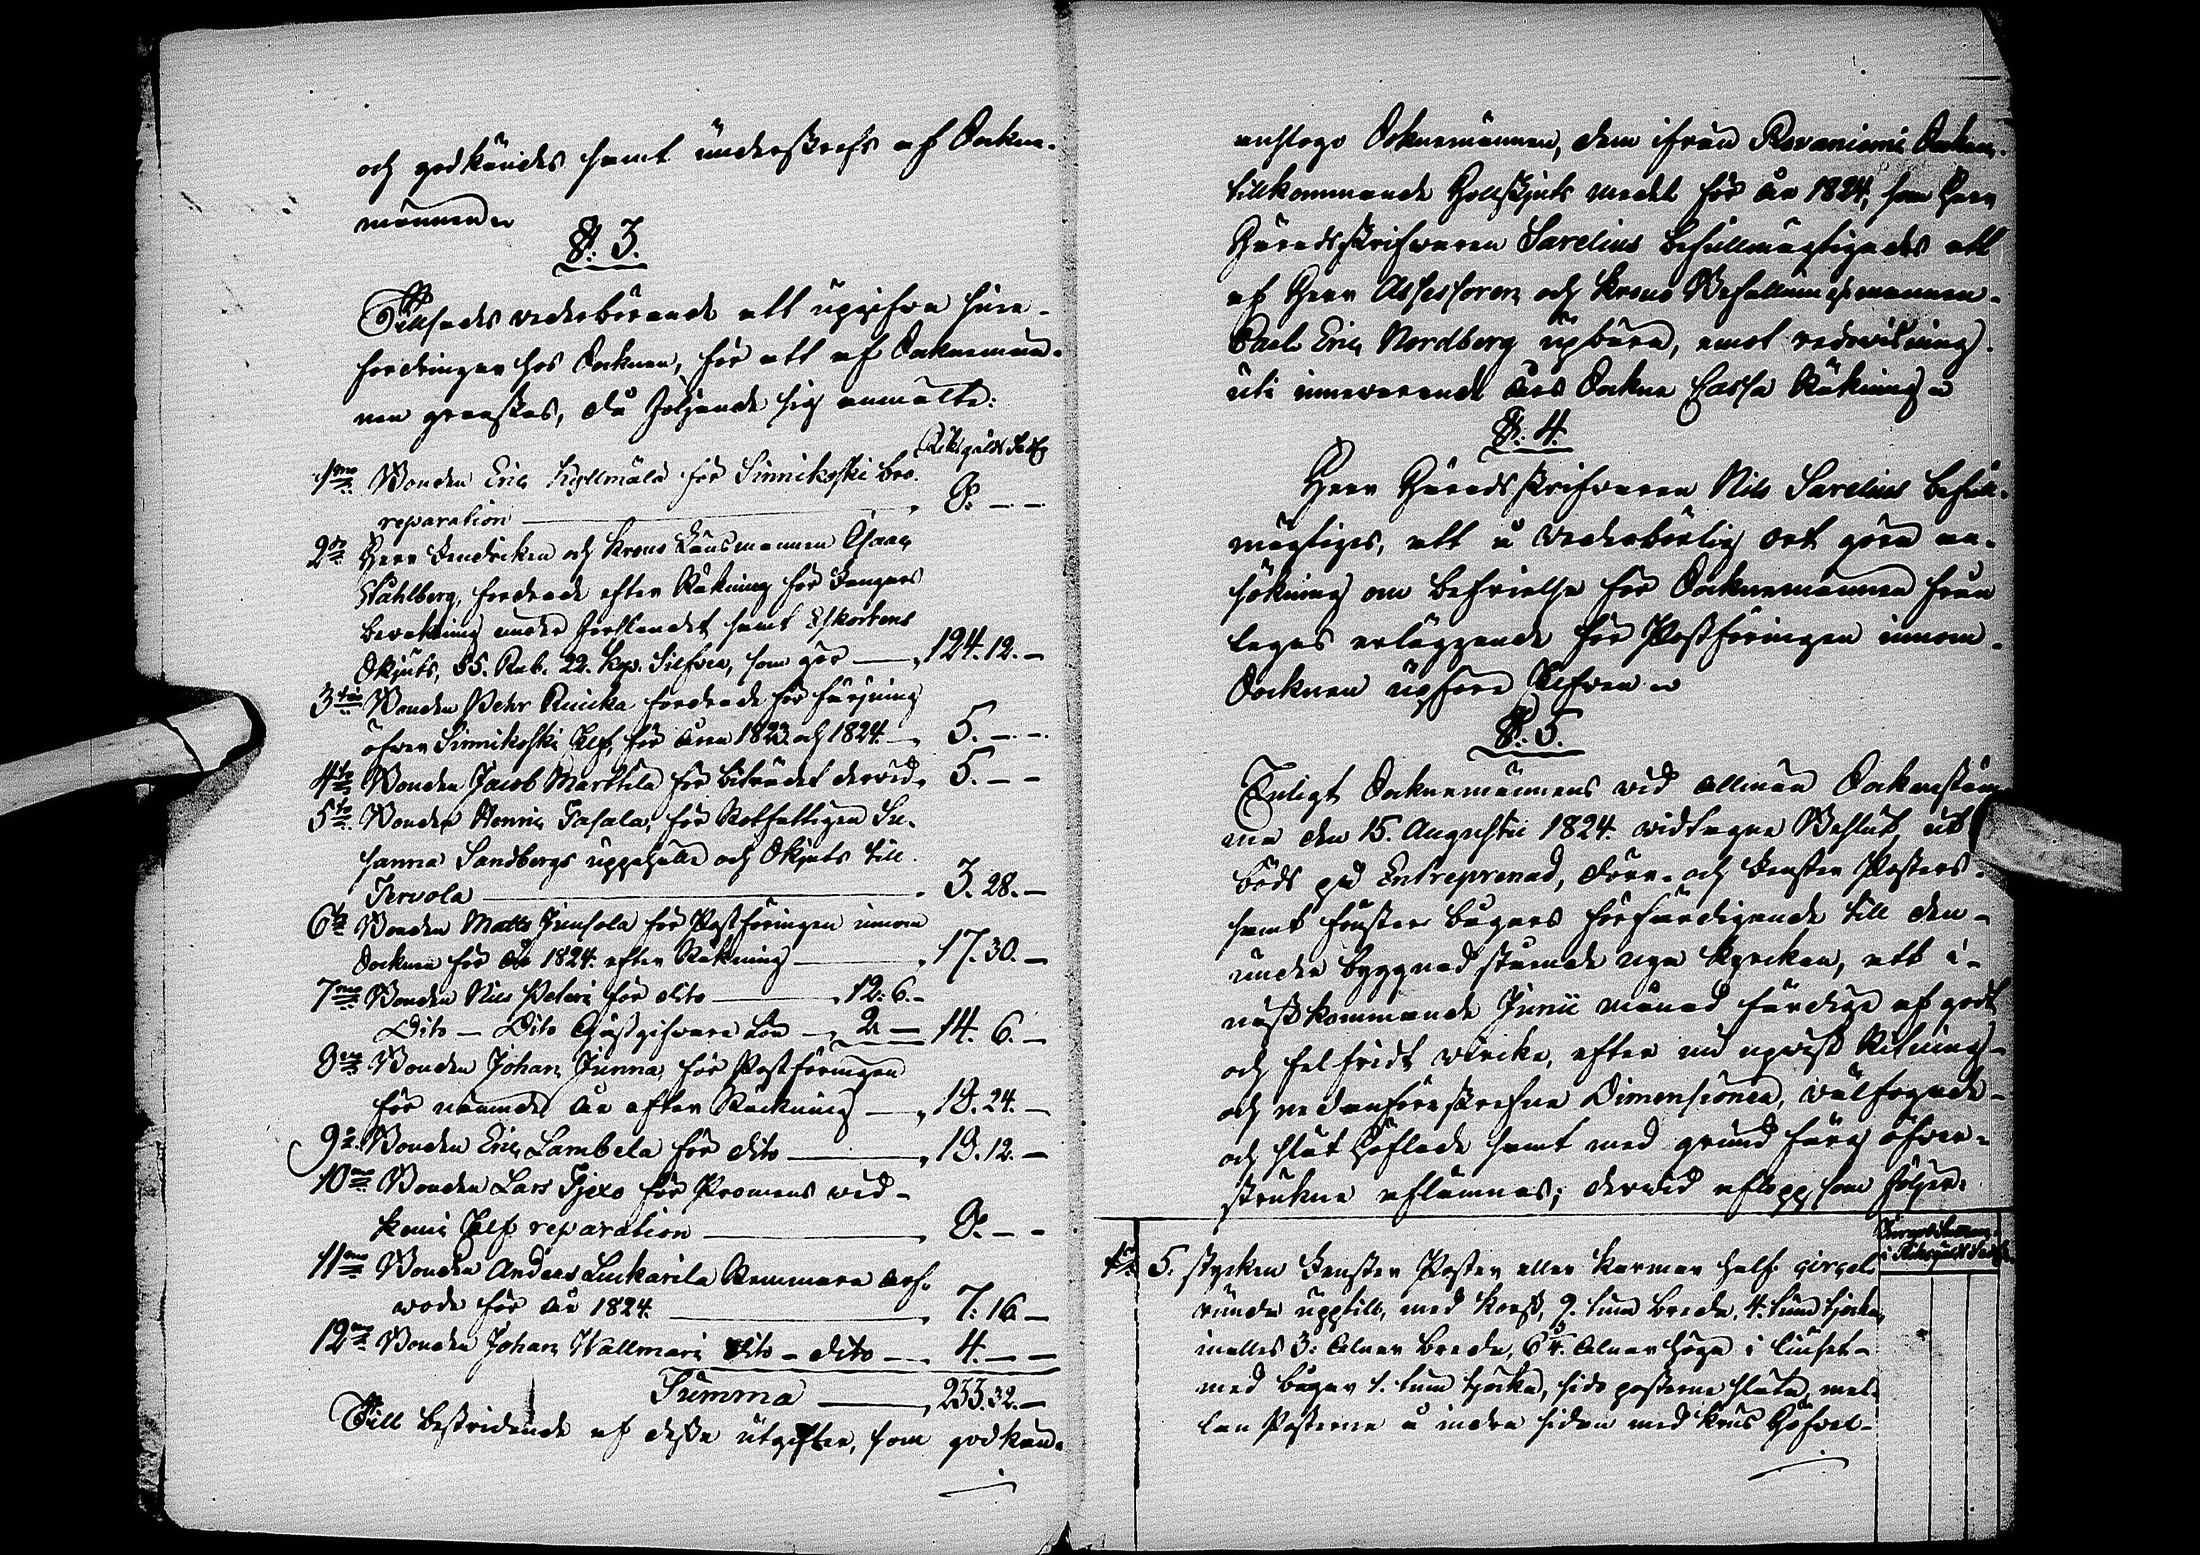 och godkändes samt underskrefs af Sockne-
männen.
§. 3.
Tillsades vederbörande att uppgifva sine
fordringar hos Socknen, för att af Sockneman-
nen granskas, då följande sig anmälte:
Riksgälds Sedlg
1mo Bonden Eric Kyllmälä för Sinnikoski bro.
reparation — 8. — —
2do Herr Lendsicken och Krono Länsmannen Isaac
Wahlberg, fordrade efter Räkning för Fångars
bevakning under fortlandet samt Eskortens
Skjuts, 55. Rub. 22. kop. Silfver, som gör — 124. 12. —
3tio Bonden Pehr Ruicka fordrade för färjning
öfver Sinnikoski Elf, för åren 1823. och 1824. — 5. — —
4to Bonden Jacob Marttila för biträdet dervid, 5. — —
5to Bonden Henric Tasala, för Rotfattigen Su-
sanna Sandbergs uppehälle och Skjuts till
Tervola — 3. 28. —
6to Bonden Matts Junsola för Postföringen innom
Socknen för år 1824. efter Räkning — 17. 30. —
7mo Bonden Nils Peteri för dito — 12. 6. —
Dito — Dito Gästgifvare Lön — 2 — 14. 6. —
8vo Bonden Johan Junna, för Postföringen
för nämnde år efter Räckning — 18. 24. —
9o Bonden Eric Lambela för dito — 18. 12. —
10mo Bonden Lars Tjexo för Promens vid
Kemi Elf reparation — 8. — —
11mo Bonden Anders Luckarila Remmare arf-
vode för år 1824. — 7. 16 —
12mo Bonden Johan Wallmari dito — dito — 4. — —
Summa — 233. 32. —
Till bestridande af desse utgifter, som godkän-
anslogo Socknemännen, dem ifrån Rovaniemi Socken
tillkommande Hollskjuts medel för år 1824, som Herr
Häradsskrifvaren Sarelius befullmägtigades att
af Herr Assessoren och Krono Befallningsmannen
Carl Eric Nordberg upbära, emot redovisning
uti innevarande års Sockne Cassa Räkning.
§. 4.
Herr Häradsskrifvaren Nils Sarelius befull-
mägtiges, att å vederbörlig ort göra an-
sökning om befrielse för Socknemännen från
legas erläggande för Postföringen innom
Socknen uppföre Elfven.
§. 5.
Enligt Socknemännens vid allmän Sockenstäm-
ma den 15. Augustii 1824. vidtagne Beslut, ut
böds på Entreprenad, dörr- och Fenster Posters
samt fönster bågars förfärdigande till den
under byggnad stående nya Kyrkan, att i
nästkommande Junii månad färdige af godt
och felfridt virke, efter nu upvist Ritning
och nedanföreskrefne Dimensioner, välfogade
och slät höflade samt med grund färg öfver-
strukne aflämnas; dervid aflopp, som följer:
i Riksgälds Sedl
1o 5. stycken Fenster Poster eller Karmar half cirkel
runda upptill, med korss, 9. tum breda, 4. tum tjocka,
inalles 3: Alnar breda, 6¾. Alnar höga i ljuset
med bågar 1. tum tjocka, sido posterne släta, mel-
lan Posterne å indre sidan med krus Höfvel-